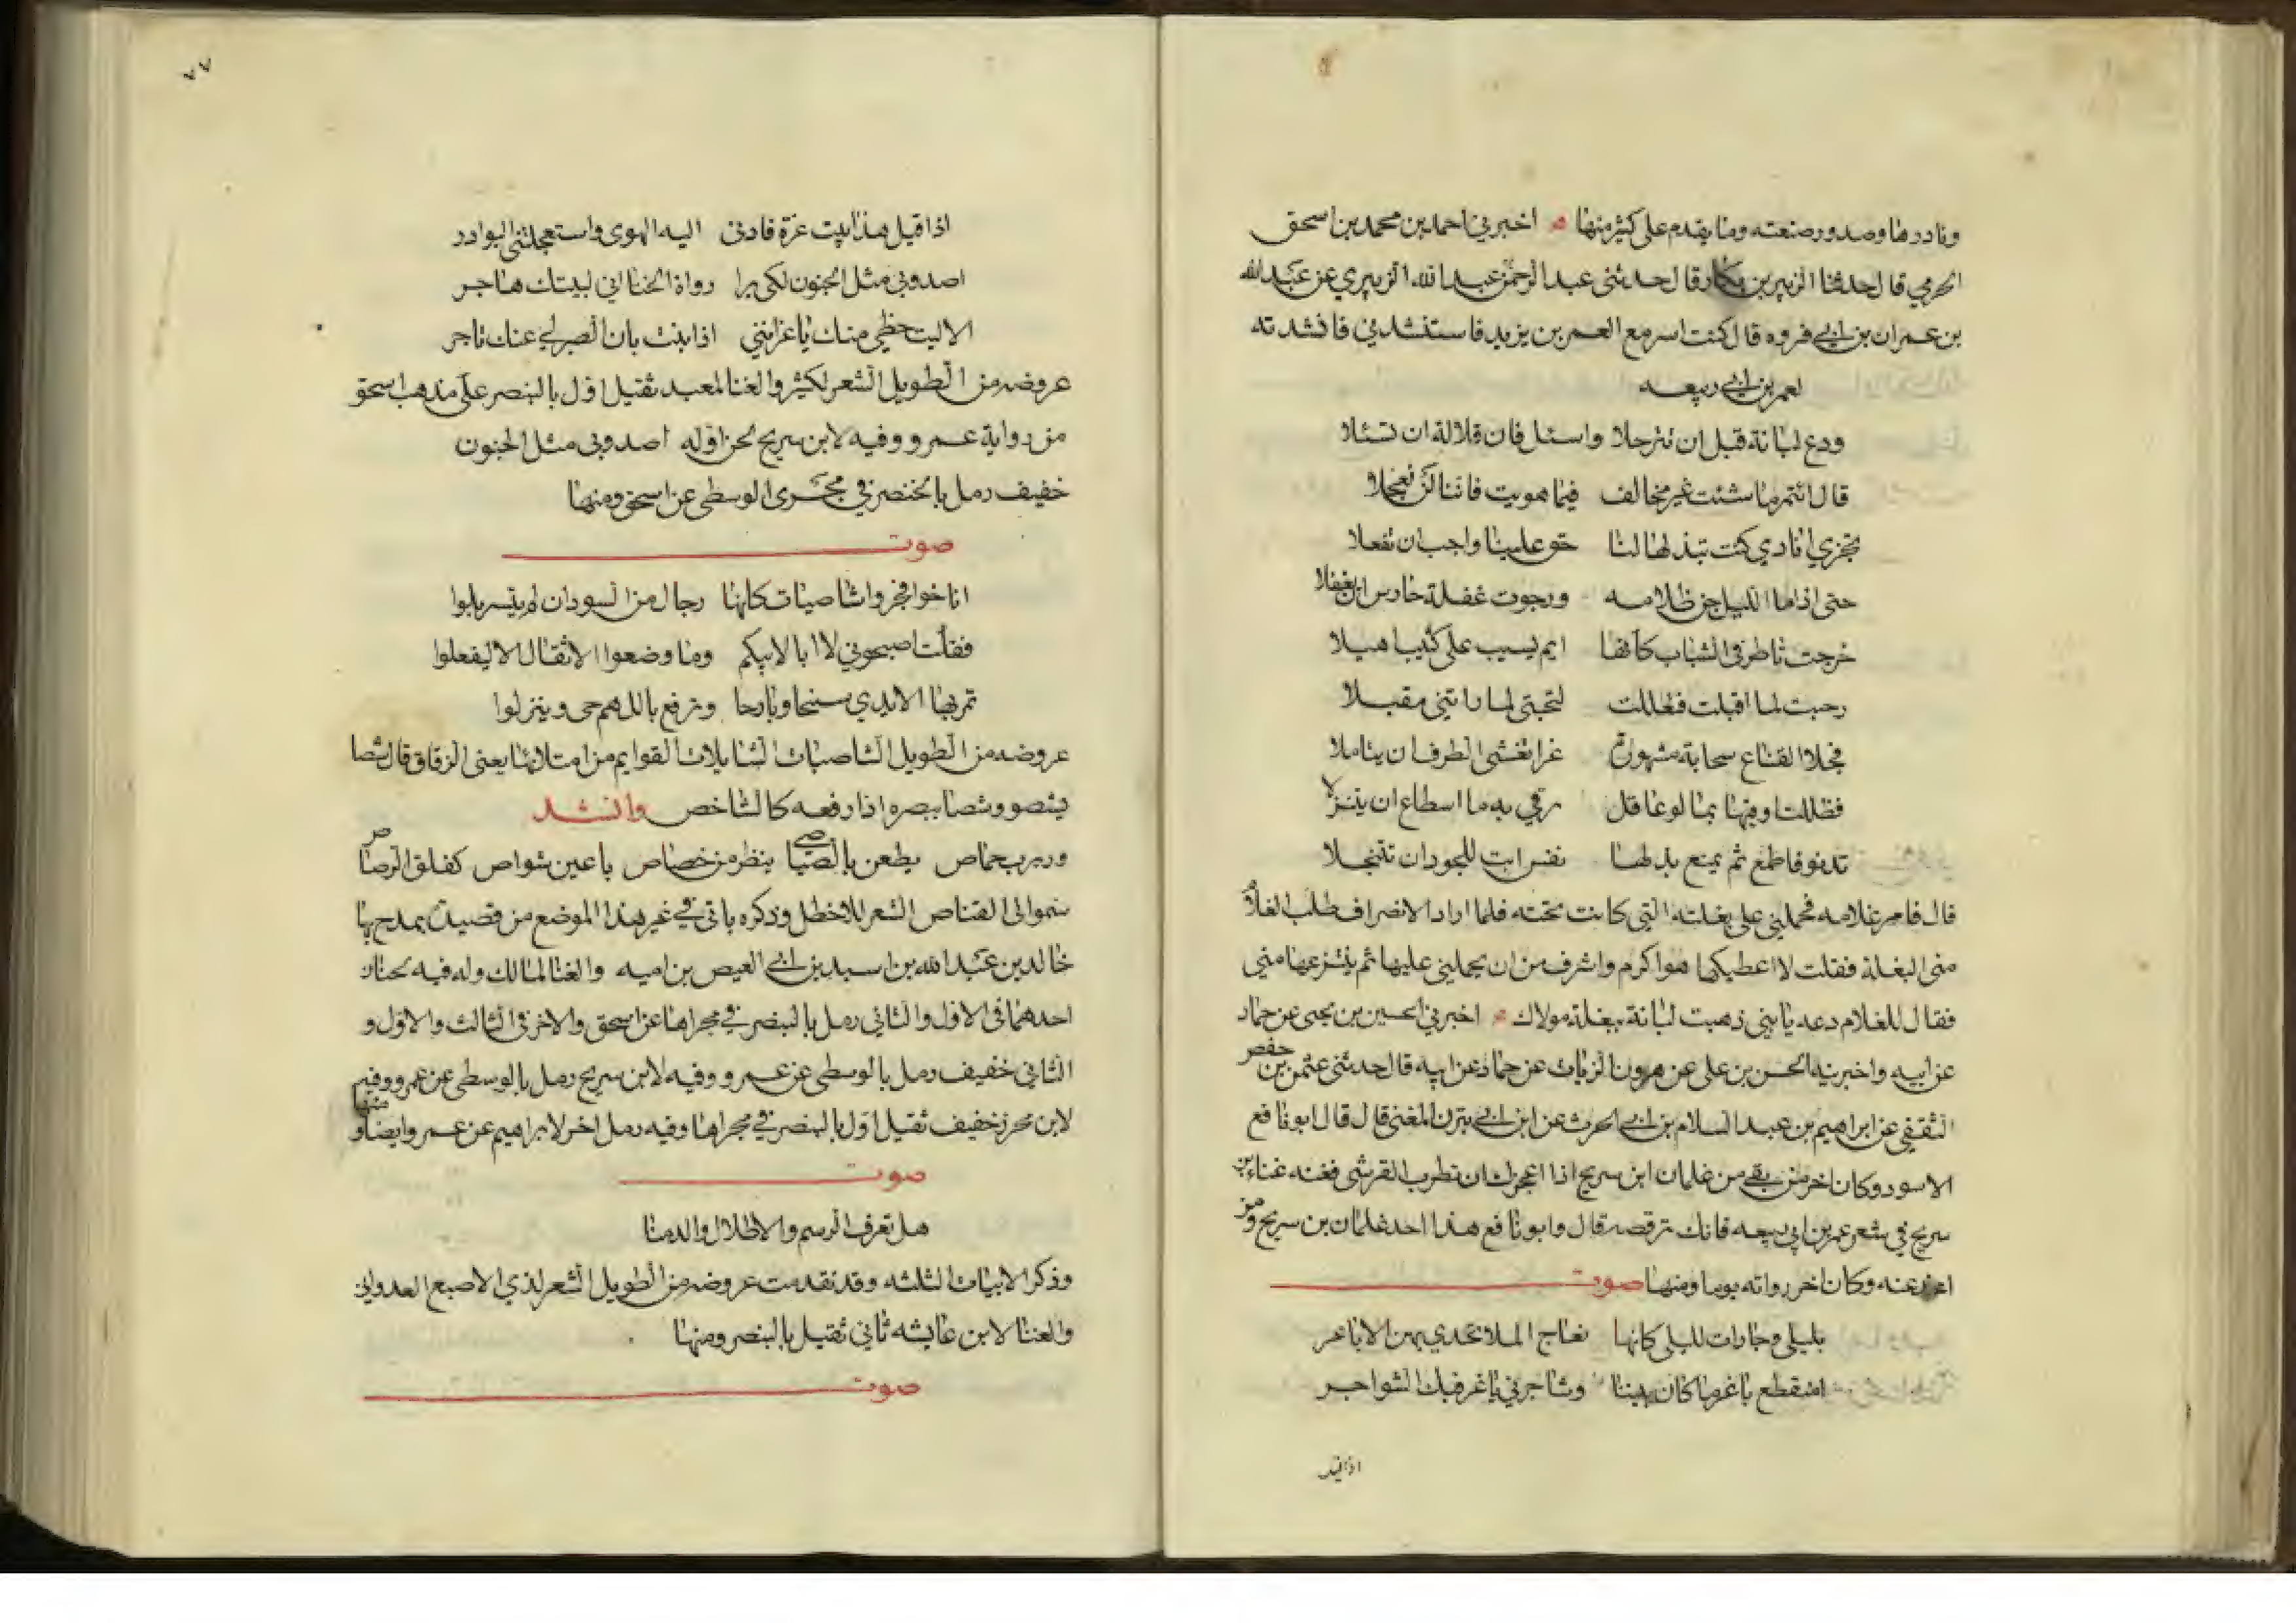 ونادرها وصدور صنعته وما يقدم على كثير منها ۞ اخبرني احمد بن محمد بن اسحق
الحرمي قال حدثنا الزبير بن بكار قال حدثني عبد الرحمن عبد الله الزبيري عن عبد الله
بن عمران بن ابي فروه قال كنت اسر مع العمر بن يزيد فاستنشدني فانشدته
لعمر بن ابي ربيعه
ودع لبانة قبل ان تترحلا واسئل فان قلالة ان تسئلا
قال ائتمر ما شئت غير مخالف فيما هويت فاننا لن نعجلا
نجزي ايادي كنت تبذلها لنا حق علينا واجب ان نفعلا
حتى اذا ما الليل جن ظلامه ورجوت غفلة حارس ان يغفلا
خرجت تاطر في الشباب كانها ايم يسيب على كثيب اهيلا
رحبت لما اقبلت فظللت لتحبتي لما راتني مقبلا
فجلا القناع سحابة مشهورة غرا تغشي الطرف ان يتاملا
فظللت اوقيها بما لو عاقل يرقي به ما اسطاع ان يتنزلا
تدنو فاطمع ثم يمنع بذلها نفس ابت للجود ان تتبخلا
قال فامر غلامه فحملني على بغلته التي كانت تحته فلما اراد الانصراف طلب الغلام
مني البغلة فقلت لا اعطيكها هو اكرم واشرف من ان يحملني عليها ثم ينتزعها مني
فقال للغلام دعه يا بني ذهبت لبانة ببغلة مولاك ۞ اخبرني الحسين بن يحيى عن حماد
عن ابيه واخبرنيه الحسن بن علي عن هرون الزيات عن حماد عن ابيه قال حدثني عثمن بن حفص
الثقفي عن ابراهيم بن عبد السلام بن ابي الحرث عن ابن ابي تيزن المغني قال قال ابو نافع
الاسود وكان اخر من بقي من غلمان ابن سريج اذا اعجزك ان تطرب القرشي فغنه غناء بن
سريج في شعر عمر بن ابي ربيعه فانك ترقصه قال وابو نافع هذا احد غلمان بن سريج ومن
اخذ عنه وكان اخر رواته يوما ومنها صوت
بليلى وجارات لليلى كانها نعاج الملا تحدي بهن الاباعر
امنقطع يا عز ما كان بيننا وشاجرني يا عز فيك الشواجر
اذا قيل
٧٧
اذا قيل هذا بيت عزة قادني اليه الهوى واستعجلتني البوادر
اصد وبي مثل الجنون لكي يرا رواة الخنا اني لبيتك هاجر
الا ليت حظي منك يا عز انني اذا بنت بان الصبر لي عنك تاجر
عروضه من الطويل الشعر لكثير والغنا لمعبد ثقيل اول بالبنصر على مذهب اسحق
من رواية عمرو وفيه لابن سريج لحن اوله اصد وبي مثل الجنون
خفيف رمل بالخنصر في مجرى الوسطى عن اسحق ومنها
صوت
اناخوا فجروا شاصيات كانها رجال من السودان لم يتسربلوا
فقلت اصبحوني لا ابا لابيكم وما وضعوا الاثقال الا ليفعلوا
تمر بها الايدي سنيحا وبارحا وترفع باللهم حي وينزلوا
عروضه من الطويل الشاصيات الشايلات القوايم من امتلائها يعني الزقاق قال شصا
يشصو وشصا ببصره اذا رفعه كالشاخص وانشد
وربرب خماص يطعن بالصياصي ينظر من خصاص باعين شواص كفلق الرصاص
ينموا الى القناص الشعر للاخطل وذكره ياتي في غير هذا الموضع من قصيدة يمدح بها
خالد بن عبد الله بن اسيد بن ابي العيص بن اميه والغنا لمالك وله فيه لحنان
احدهما في الاول والثاني رمل بالبنصر في مجراها عن اسحق والاخر في الثالث والاول و
الثاني خفيف رمل بالوسطى عن عمرو وفيه لابن سريج رمل بالوسطى عن عمرو وفيه
لابن محرز خفيف ثقيل اول بالبنصر في مجراها وفيه رمل اخر لابراهيم عن عمرو ايضا ومنها
صوت
هل تعرف الرسم والاطلال والدمنا
وذكر الابيات الثلثه وقد تقدمت عروضه من الطويل الشعر لذي الاصبع العدواني
والغنا لابن عايشه ثاني ثقيل بالبنصر ومنها
صوت